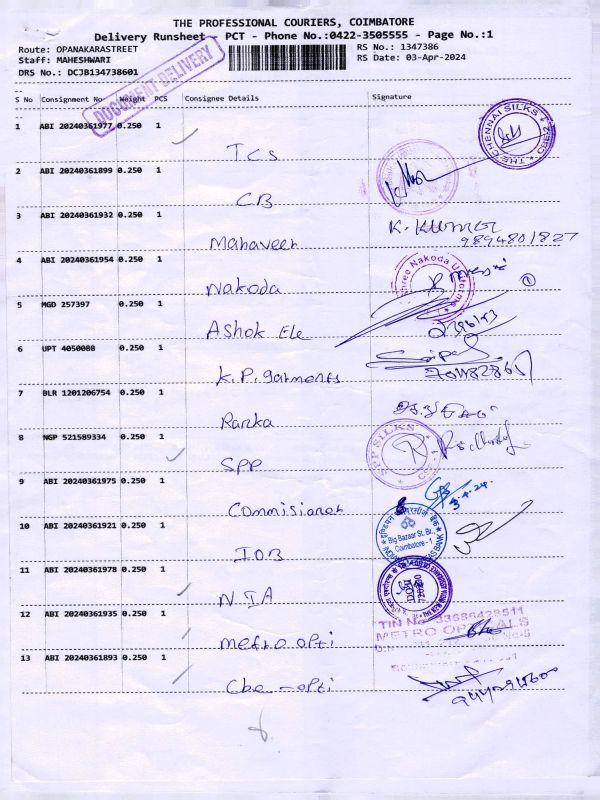 THE PROFESSIONAL COURIERS, COIMBATORE
Delivery Runsheet - PCT - Phone No.:0422-3505555 - Page No.:1
Route: OPANAKARASTREET
RS No.: 1347386
Staff: MAHESHWARI
RS Date: 03-Apr-2024
DRS No.: DCJB134738601
DOCUMENT DELIVERY
S No Consignment No Weight PCS Consignee Details Signature
1 ABI 20240361977 0.250 1
TCS
THE CHENNAI SILKS CBE-2
2 ABI 20240361899 0.250 1
CB
3 ABI 20240361932 0.250 1
Mahaveer
K. KUMAR
9894801827
4 ABI 20240361954 0.250 1
Nakoda
Shree Nakoda Uniforms
1
5 MGD 257397 0.250 1
Ashok Ele
6 UPT 4050088 0.250 1
K.P. garments
7 BLR 1201206754 0.250 1
Ranka
8 NGP 521589334 0.250 1
SPP
SPP SILKS CBE-1
9 ABI 20240361975 0.250 1
Commisioner
3.4.24
10 ABI 20240361921 0.250 1
IOB
Big Bazaar St. Br.,
Coimbatore - 1
11 ABI 20240361978 0.250 1
NIA
12 ABI 20240361935 0.250 1
metro opti
TIN No 33686428511
METRO OPTICALS
13 ABI 20240361893 0.250 1
Cbe - opti